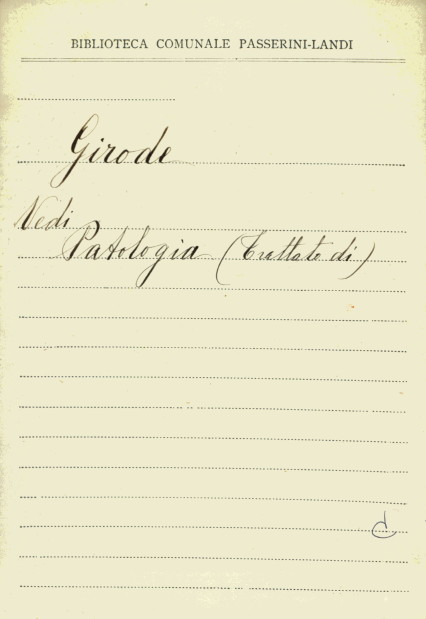 BIBLIOTECA COMUNALE PASSERINI-LANDI
Girode
Vedi
Patologia (Trattato di)